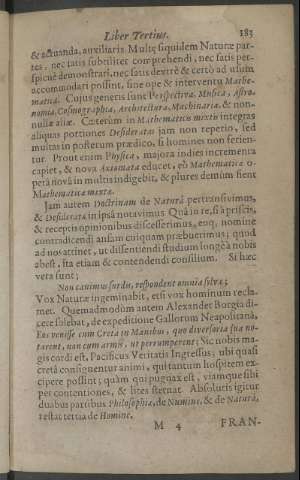 Liber Tertius. 183
& actuanda, auxiliaris. Multę siquidem Naturæ par-
tes, nec satis subtiliter comprehendi, nec satis per-
spicuè demonstrari, nec satis dextrè & certò ad usum
accommodari possint, sine ope & interventu Mathe-
maticæ. Cujus generis sunt Perspectiva, Musica, Astro-
nomia, Cosmographia, Architectura, Machinaria, & non-
nullæ aliæ. Cæterùm in Mathematicis mixtis integras
aliquas portiones Desideratas jam non reperio, sed
multas in posterum prædico, si homines non ferien-
tur. Prout enim Physica, majora indies incrementa
capiet, & nova Axiomata educet, eò Mathematicæ o-
perâ novâ in multis indigebit, & plures demùm fient
Mathematicæ mixtæ.
Jam autem Doctrinam de Naturâ pertransivimus,
& Desiderata in ipsâ notavimus. Quâ in re, si à priscis,
& receptis opinionibus discesserimus, eoq; nomine
contradicendi ansam cuiquam præbuerimus; quod
ad nos attinet, ut dissentiendi studium longè à nobis
abest, ita etiam & contendendi consilium. Si hæc
vera sunt;
Non canimus surdis, respondent omnia sylvæ;
Vox Naturæ ingeminabit, etsi vox hominum recla-
met. Quemadmodùm autem Alexander Borgia di-
cere solebat, de expeditione Gallorum Neapolitanâ,
Eos venisse cum Creta in Manibus, quo diversoria sua no-
tarent, non cum armis, ut perrumperent: Sic nobis ma-
gis cordi est, Pacificus Veritatis Ingressus, ubi quasi
cretâ consignentur animi, qui tantum hospitem ex-
cipere possint; quàm qui pugnax est, viamque sibi
per contentiones, & lites sternat. Absolutis igitur
duabus partibus Philosophiæ, de Numine, & de Naturâ,
restat tertia de Homine.
M 4 FRAN-